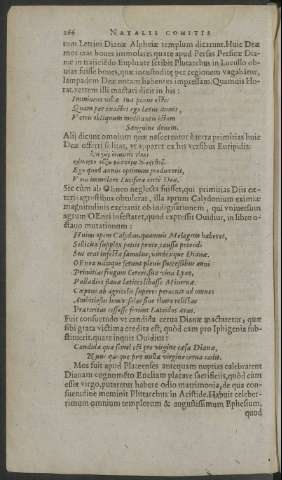 266 NATALIS COMITIS
tum Letrini Dianæ Alphiæ templum dicarunt. Huic Deæ
mos erat boues immolare, quare apud Persas Persicæ Dia-
næ in traiiciédo Euphrate scribit Plutarchus in Lucullo ob-
uias fuisse boues, quæ incustoditæ per regionem vagabantur,
lampadem Deæ notam habentes impressam. Quamuis Ho-
rat. verrem illi mactari dicit in his:
Imminens villæ tua pinus esto:
Quam per exactos ego lætus annos,
Verris obliquum meditantis ictum
Sanguine donem.
Alij dicunt omnium quæ nascerentur è terra primitias huic
Deæ offerri solitas,
Euripidis
Ego quod annus optimum produceret,
Voui immolare Luciferæ certè Deæ.
Sic cùm ab Oeneo neglecta fuisset, qui primitias Diis cæ-
teri agrestibus obtulerat, illa aprum Calydonium eximiæ
magnitudinis excitauit ob indignationem, qui vniuersum
agrum OEnei infestaret, quod expressit Ouidius, in libro o-
ctauo mutationum:
Huius opem Calydon, quamuis Meleagron haberet,
Sollicita supplex petiit prece, caussa petendi
Sus erat infestæ famulus, vindexque Dianæ.
OEnea namque ferunt pleni successibus anni
Primitias frugum Cereri, sua vina Lyæo,
Palladios flauæ latices libasse Mineruæ.
Cœptus ab agricolis superos peruenit ad omnes
Ambitiosus honor: solas sine thure relictas
Præteritæ cessasse ferunt Latoidos aras.
Fuit consuetudo vt candida cerua Dianæ mactaretur, quæ
sibi grata victima credita est, quòd eam pro Iphigenia sub-
stituerit, quare inquit Ouidius:
Candida quæ semel est pro virgine cæsa Dianæ,
Nunc quoque pro nulla virgine cerua cadit.
Mos fuit apud Plateenses antequam nuptias celebrarent
Dianam cognomēto Eucliam placare sacrificiis, quòd cùm
esset virgo, putaretur habere odio matrimonia, de qua con-
suetudine meminit Plutarchus in Aristide. Habuit celeber-
rimum omnium templorum & augustissimum Ephesium,
quod